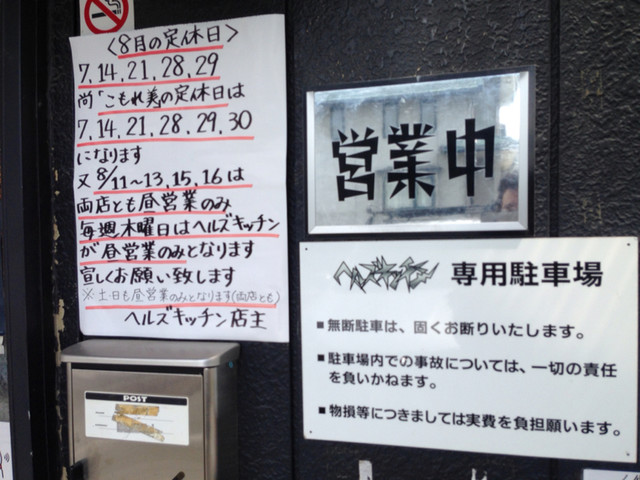 〈8月の定休日〉
7,14,21,28,29
尚「こもれ美の定休日は
7,14,21,28,29,30
になります
又8/11〜13,15,16は
両店とも昼営業のみ
毎週木曜日はヘルズキッチン
が昼営業のみとなります
宜しくお願い致します
※土・日も昼営業のみとなります(両店とも)
ヘルズキッチン店主
POST
営業中
ヘルズキッチン 専用駐車場
■無断駐車は、固くお断りいたします。
■駐車場内での事故については、一切の責任
を負いかねます。
■物損等につきましては実費を負担願います。